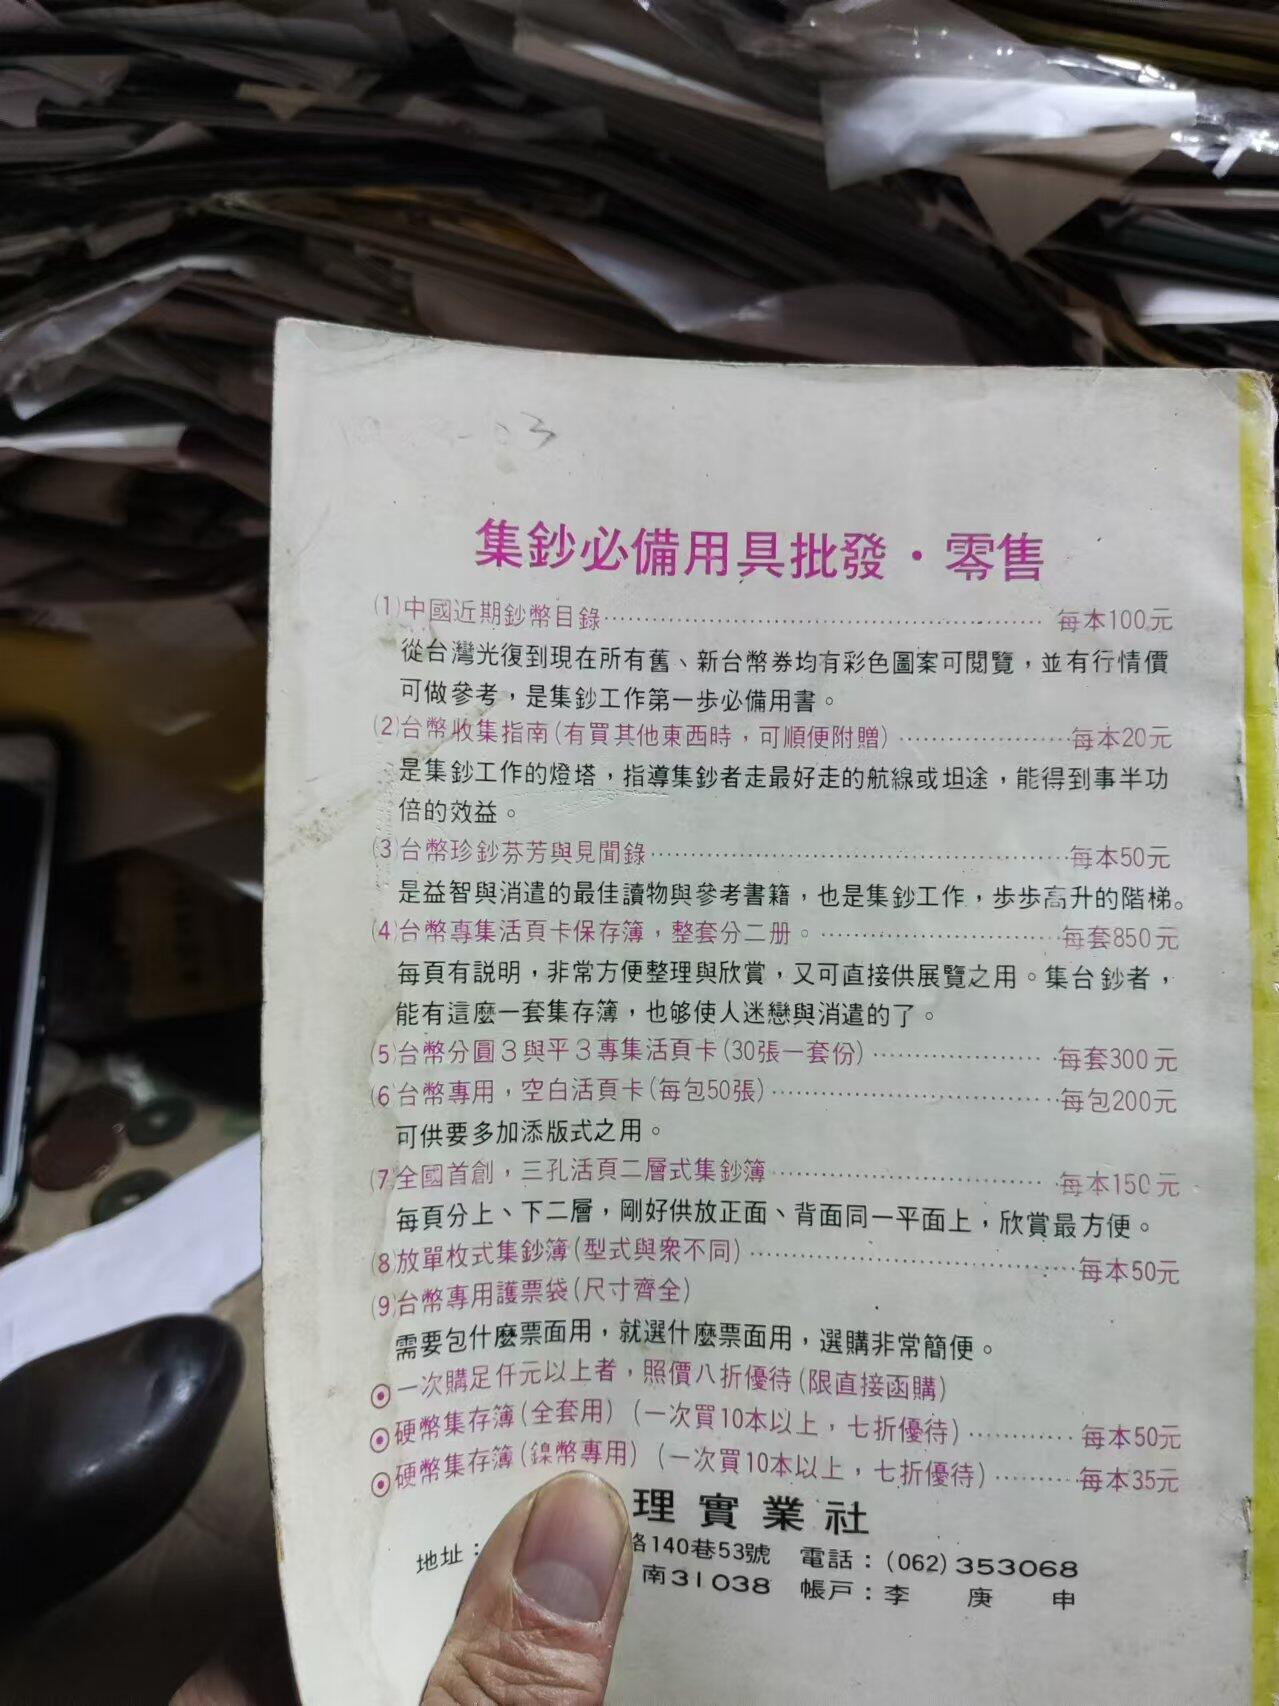 集鈔必備用具批發・零售
(1)中國近期鈔幣目錄…………………………………………每本100元
從台灣光復到現在所有舊、新台幣券均有彩色圖案可閱覽，並有行情價
可做參考，是集鈔工作第一步必備用書。
(2)台幣收集指南(有買其他東西時，可順便附贈)…………………每本20元
是集鈔工作的燈塔，指導集鈔者走最好走的航線或坦途，能得到事半功
倍的效益。
(3)台幣珍鈔芬芳與見聞錄…………………………………………每本50元
是益智與消遣的最佳讀物與參考書籍，也是集鈔工作，步步高升的階梯。
(4)台幣專集活頁卡保存簿，整套分二册。…………………………每套850元
每頁有説明，非常方便整理與欣賞，又可直接供展覽之用。集台鈔者，
能有這麼一套集存簿，也够使人迷戀與消遣的了。
(5)台幣分圓３與平３專集活頁卡(30張一套份)…………………每套300元
(6)台幣專用，空白活頁卡(每包50張)……………………………每包200元
可供要多加添版式之用。
(7)全國首創，三孔活頁二層式集鈔簿……………………………每本150元
每頁分上、下二層，剛好供放正面、背面同一平面上，欣賞最方便。
(8)放單枚式集鈔簿(型式與衆不同)………………………………每本50元
(9)台幣專用護票袋(尺寸齊全)
需要包什麼票面用，就選什麼票面用，選購非常簡便。
⊙一次購足仟元以上者，照價八折優待(限直接函購)
⊙硬幣集存簿(全套用)(一次買10本以上，七折優待)…………每本50元
⊙硬幣集存簿(鎳幣專用)(一次買10本以上，七折優待)………每本35元
理實業社
地址：路140巷53號 電話：(062)353068
南31038 帳戶：李庚申